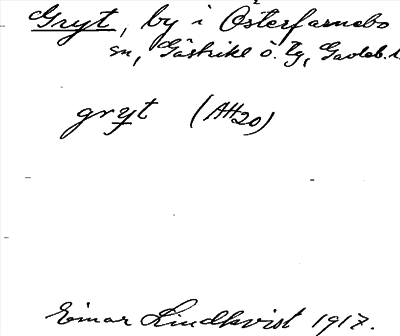 Gryt, by i Österfärnebo
sn, Gästrikl. ö. tg, Gävleb. l.
gryt (AH20)
Einar Lindkvist 1917.